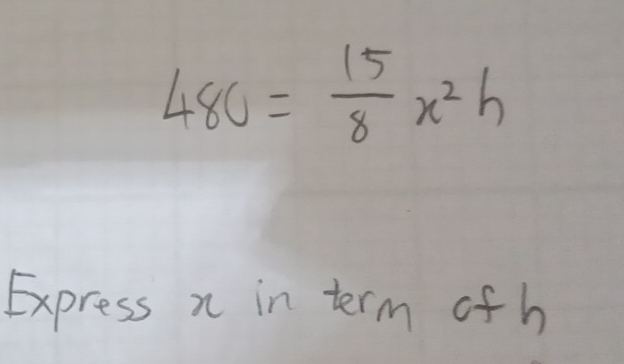 480 = 15/8 x² h
Express x in term of h